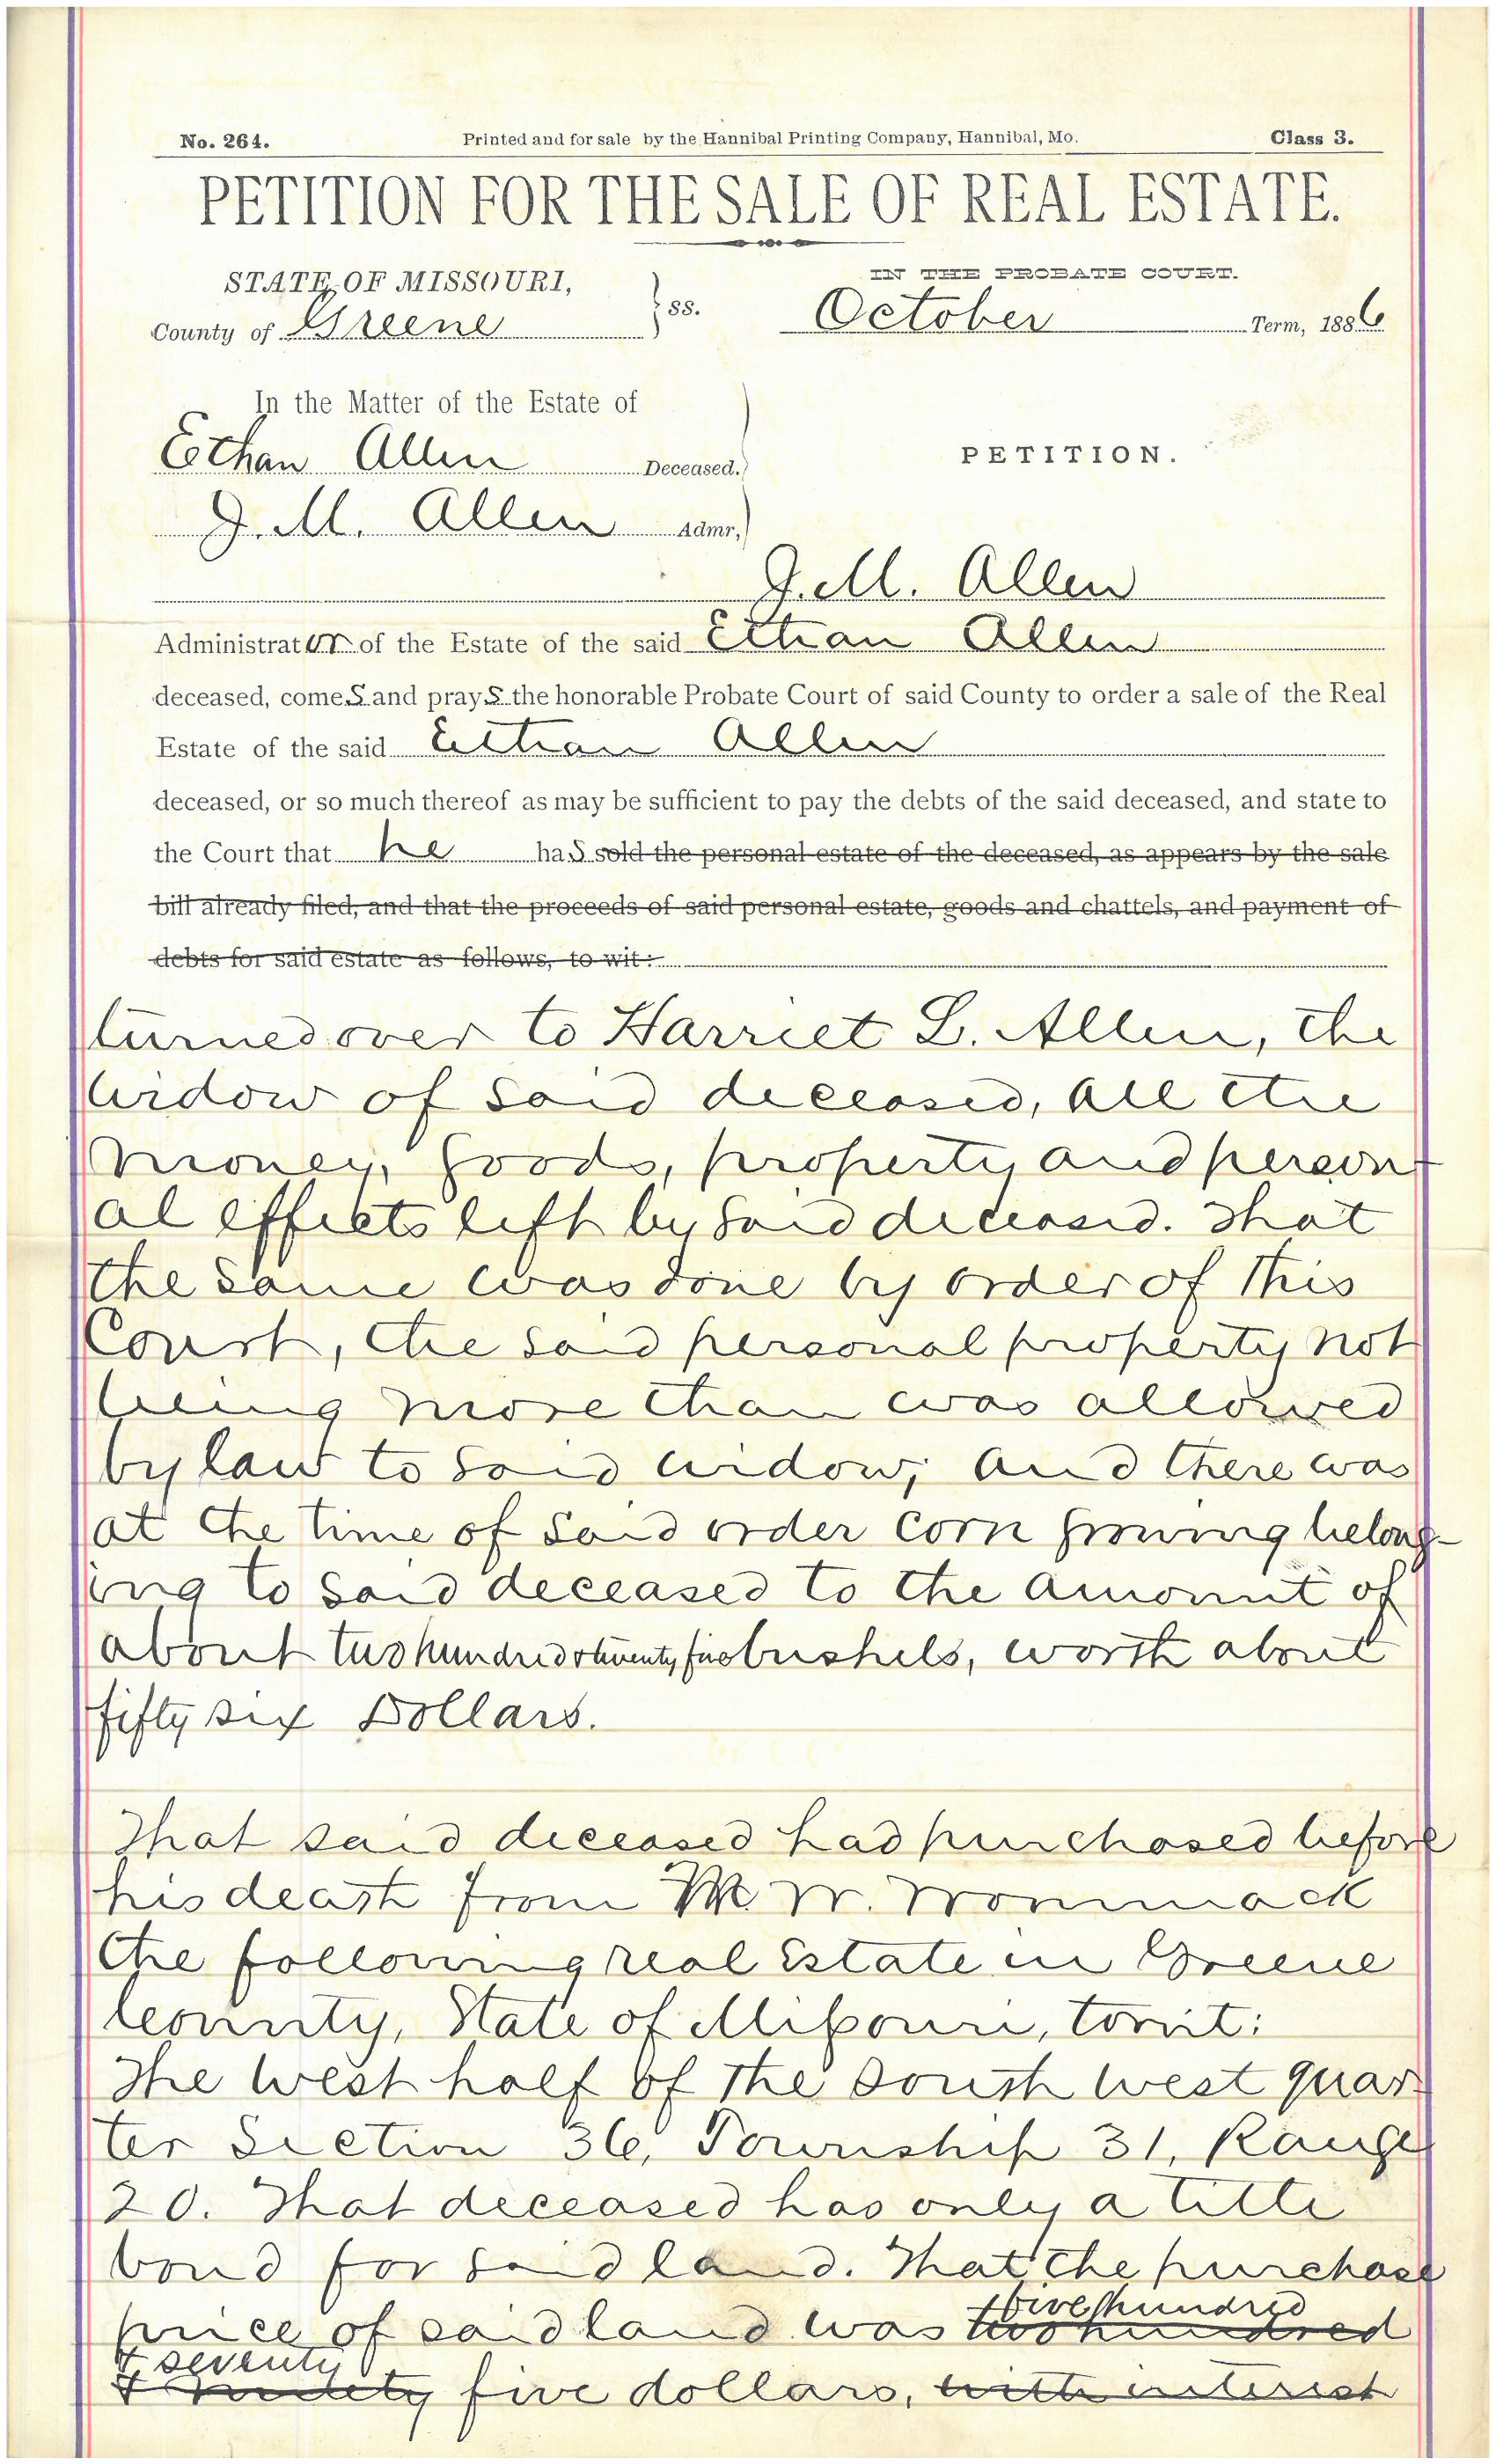 No. 264. Printed and for sale by the Hannibal Printing Company, Hannibal, Mo. Class 3.
PETITION FOR THE SALE OF REAL ESTATE.
STATE OF MISSOURI, IN THE PROBATE COURT.
County of Greene } ss. October Term, 1886
In the Matter of the Estate of
Ethan Allen Deceased. PETITION.
J. M. Allen Admr,
J. M. Allen
Administrator of the Estate of the said Ethan Allen
deceased, comes and prays the honorable Probate Court of said County to order a sale of the Real
Estate of the said Ethan Allen
deceased, or so much thereof as may be sufficient to pay the debts of the said deceased, and state to
the Court that he has sold the personal estate of the deceased, as appears by the sale
bill already filed, and that the proceeds of said personal estate, goods and chattels, and payment of
debts for said estate as follows, to-wit:
turned over to Harriet L. Allen, the
widow of said deceased, all the
money, goods, property and person-
al effects left by said deceased. That
the same was done by order of this
Court, the said personal property not
being more than was allowed
by law to said widow; and there was
at the time of said order corn growing belong-
ing to said deceased to the amount of
about two hundred & twenty five bushels, worth about
fifty six Dollars.
That said deceased had purchased before
his death from M. W. Wommack
the following real Estate in Greene
County, State of Missouri, towit:
The West half of the South West quar-
ter Section 36, Township 31, Range
20. That deceased has only a title
bond for said land. That the purchase
five hundred
price of said land was two hundred
& seventy
& ninety five dollars, with interest